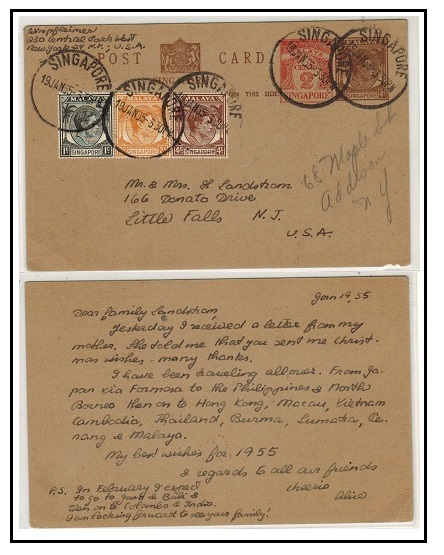 Wimpfheimer
230 Central Park West
New York 24 N.Y.; U.S.A.
POST CARD
SINGAPORE
19 JAN 55
SINGAPORE
19 JAN 55
SINGAPORE
ON THIS SIDE
MALAYA
SINGAPORE
MALAYA
MALAYA
SINGAPORE
Mr. & Mrs. H Landstrom
166 Donato Drive
Little Falls N.J.
U.S.A.
68 Maple St
Addison
N Y
Jan 19, 55
Dear family Landstrom,
Yesterday I received a letter from my
mother. She told me that you sent me Christ-
mas wishes - many thanks.
I have been traveling all over. From Ja-
pan via Formosa to the Philippines & North
Borneo then on to Hong Kong, Macau, Vietnam
Cambodia, Thailand, Burma, Sumatra, Pe-
nang & Malaya.
My best wishes for 1955
& regards to all our friends
cheerio
Alice
P.S. In February I expect
to go to Java & Bali &
then on to Colombo & India.
I am looking forward to see your family!